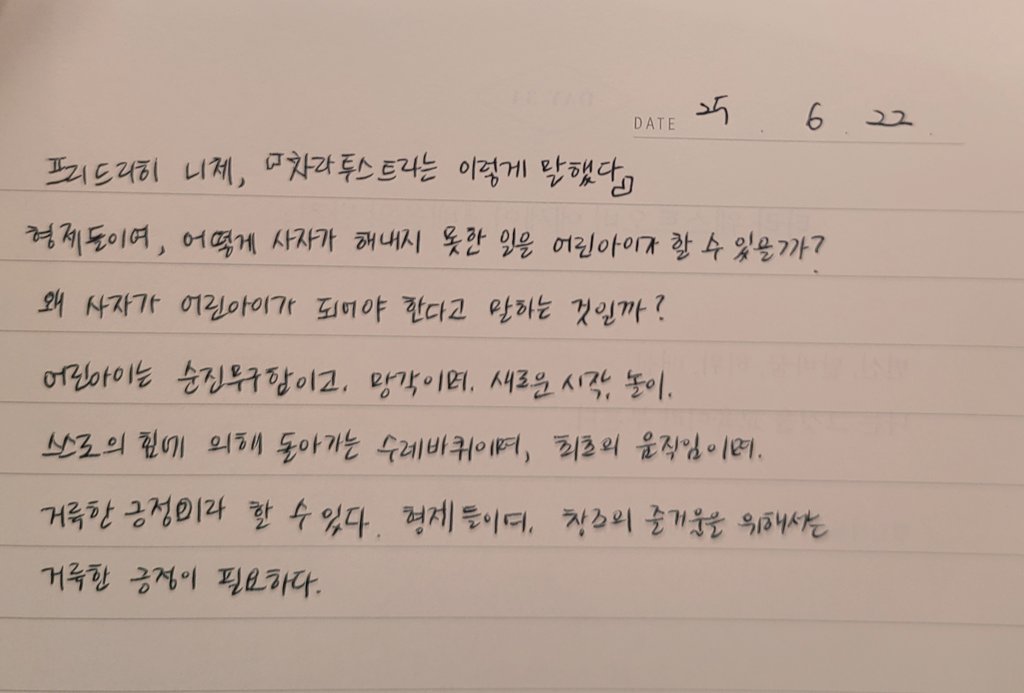 DATE 25 . 6 . 22 .
프리드리히 니체, 『차라투스트라는 이렇게 말했다』
형제들이여, 어떻게 사자가 해내지 못한 일을 어린아이가 할 수 있을까?
왜 사자가 어린아이가 되어야 한다고 말하는 것일까?
어린아이는 순진무구함이고, 망각이며, 새로운 시작, 놀이,
스스로의 힘에 의해 돌아가는 수레바퀴이며, 최초의 움직임이며,
거룩한 긍정이라 할 수 있다. 형제들이여, 창조의 즐거움을 위해서는
거룩한 긍정이 필요하다.